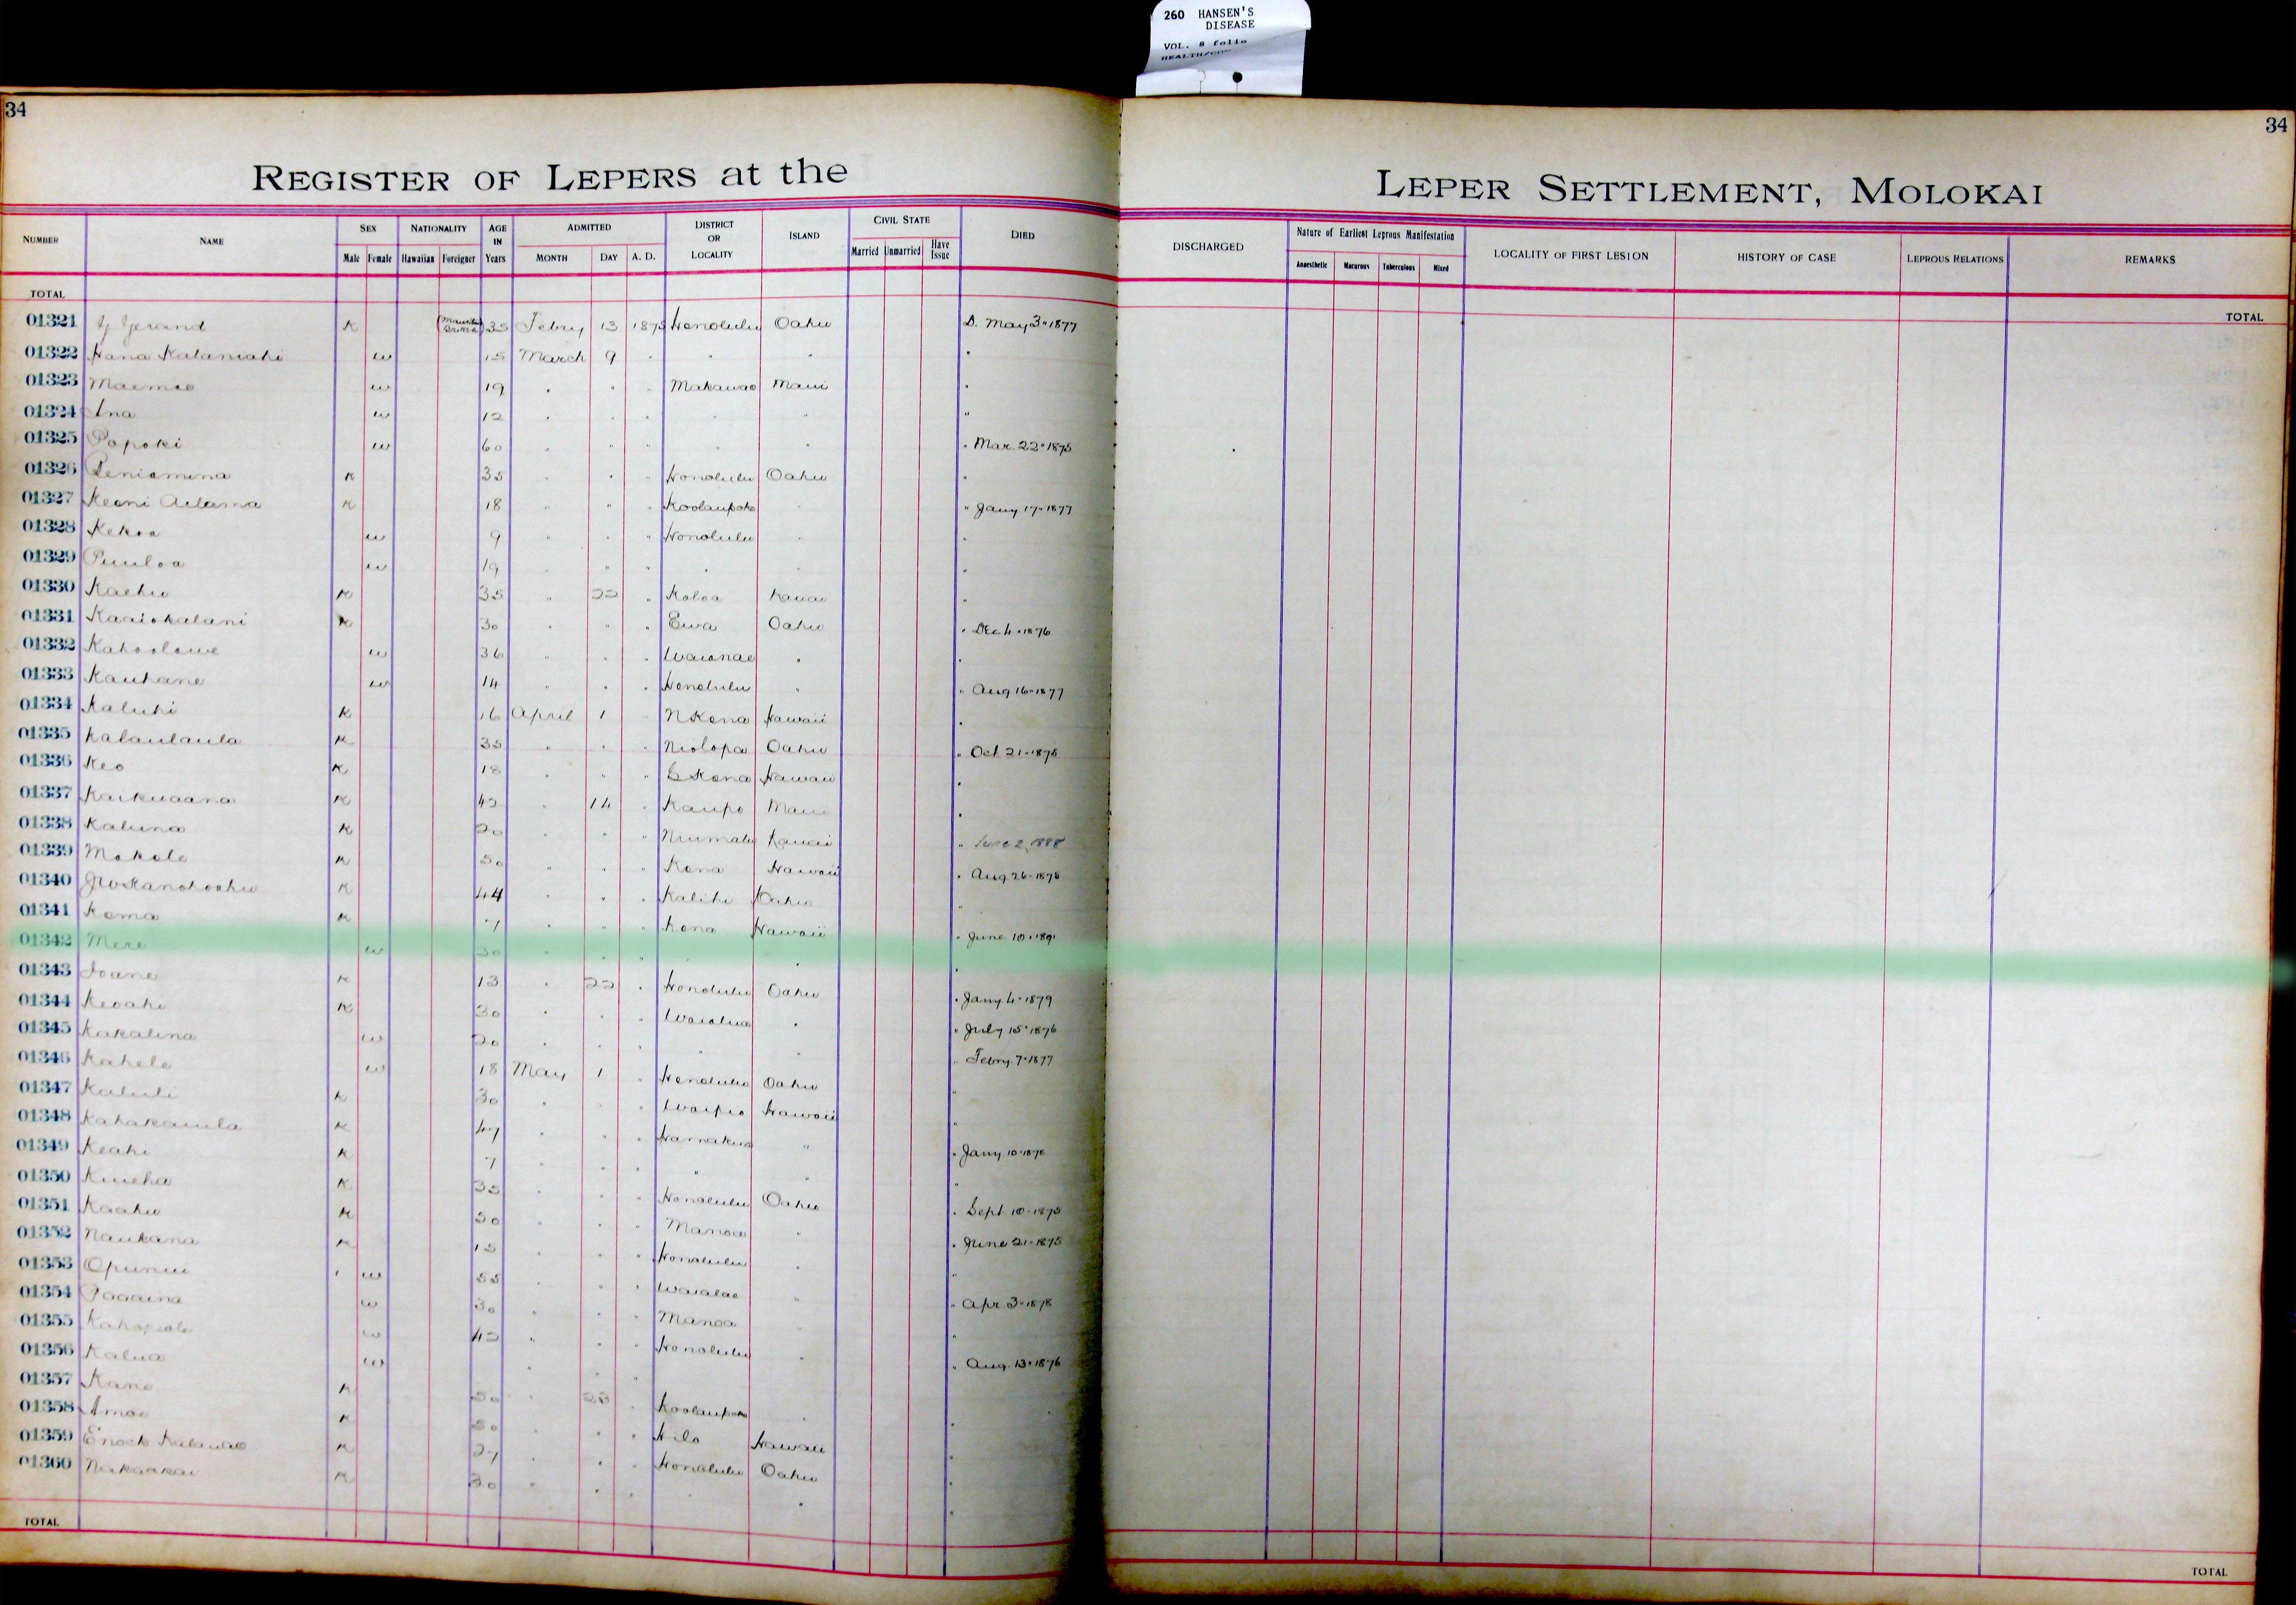 260 HANSEN'S
DISEASE
VOL. 8 folio
34
34
REGISTER OF LEPERS at the
LEPER SETTLEMENT, MOLOKAI
NUMBER NAME SEX NATIONALITY AGE IN Years ADMITTED DISTRICT OR LOCALITY ISLAND CIVIL STATE DIED
Male Female Hawaiian Foreigner MONTH DAY A. D. Married Unmarried Have Issue
DISCHARGED Nature of Earliest Leprous Manifestation LOCALITY OF FIRST LESION HISTORY OF CASE LEPROUS RELATIONS REMARKS
Anaesthetic Macurous Tuberculous Mixed
TOTAL
TOTAL
01321 Gerand K 35 Febry 13 1875 Honolulu Oahu D. May 3 " 1877
01322 Hana Kalaniahi w 15 March 9 " " " "
01323 Maemae w 19 " " " Makawao Maui "
01324 Ana w 12 " " " " " "
01325 Popoki w 60 " " " " " " Mar. 22 " 1875
01326 Peniamina K 35 " " " Honolulu Oahu "
01327 Keoni Adama K 18 " " " Koolaupoko " " Jany 17 " 1877
01328 Kekoa w 9 " " " Honolulu " "
01329 Puuloa w 19 " " " " " "
01330 Kaehu K 35 " 22 " Koloa Kauai "
01331 Kaaiokalani K 30 " " " Ewa Oahu " Dec 4 " 1876
01332 Kahoolawe w 36 " " " Waianae " "
01333 Kauhane w 14 " " " Honolulu " " Aug 16 " 1877
01334 Kaluhi K 16 April 1 " N Kona Hawaii "
01335 Kalaulaula K 35 " " " Niolopa Oahu " Oct 21 " 1875
01336 Keo K 18 " " " S Kona Hawaii "
01337 Kaikuaana K 42 " 14 " Kaupo Maui "
01338 Kaluna K 20 " " " Niumalu Kauai " June 2, 1888
01339 Makole K 50 " " " Kona Hawaii " Aug 26 " 1878
01340 K 44 " " " Kalihi Oahu "
01341 Kema K 7 " " " Kona Hawaii " June 10 " 1891
01342 Mere w 30 " " " " "
01343 Ioane K 13 " 22 " Honolulu Oahu " Jany 4 " 1879
01344 Keoahi K 30 " " " Waialua " " July 15 " 1876
01345 Kakalina w 20 " " " " " " Febry. 7 " 1877
01346 Kahele w 18 May 1 " Honolulu Oahu "
01347 Kaluli K 30 " " " Waipio Hawaii "
01348 Kahakauila K 47 " " " Hamakua " " Jany 10 " 1878
01349 Keahi K 7 " " " " " "
01350 Kuueha K 35 " " " Honolulu Oahu " Sept 10 " 1875
01351 Kaahu K 50 " " " Manoa " " June 21 " 1875
01352 Naukana K 15 " " " Honolulu " "
01353 Opunui w 55 " " " Waialae " " Apr 3 " 1878
01354 Paaaina w 30 " " " Manoa " "
01355 w 42 " " " Honolulu " " Aug. 13 " 1876
01356 Kalua w " " "
01357 Kane K 50 " 28 " Koolaupoko " "
01358 Amoe K 50 " " " Hilo Hawaii "
01359 Enoch Kalauao K 27 " " " Honolulu Oahu "
01360 Nakaakai K 30 " " " " " "
TOTAL
TOTAL